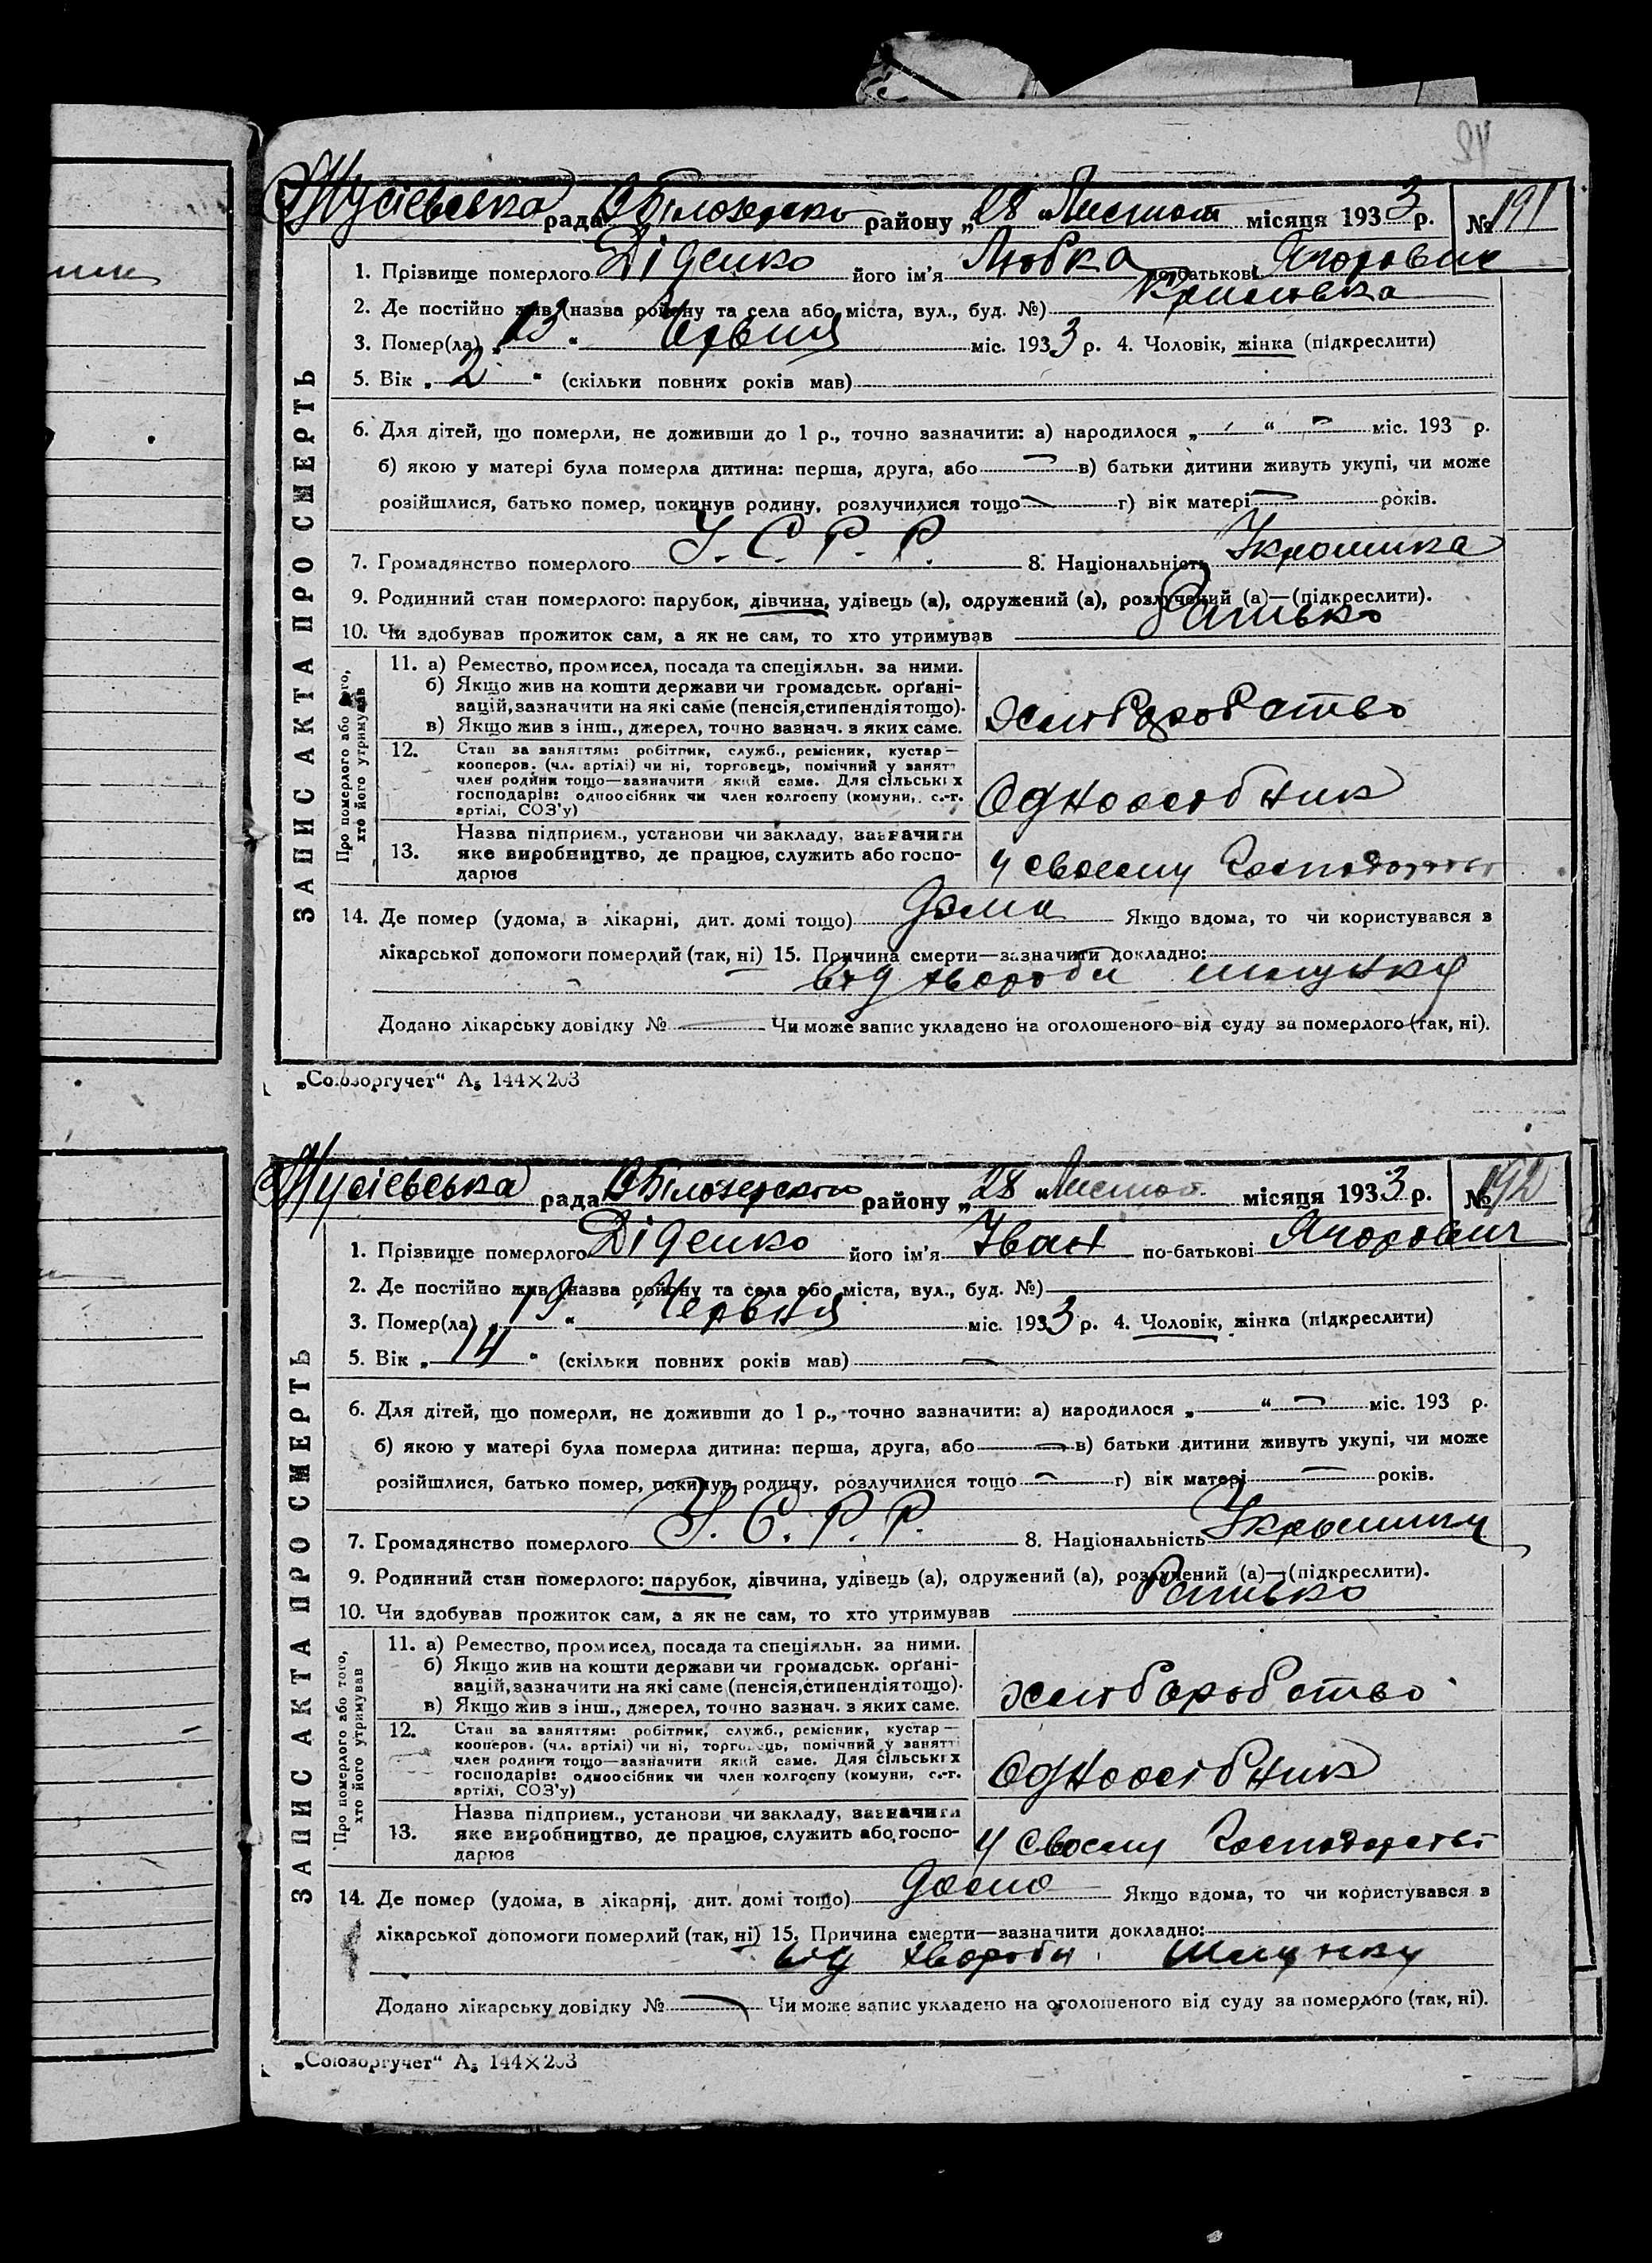 Мусієвська рада В Білозерсько району „28 „Листопат місяця 1933 р. № 191
1. Прізвище померлого Діденко його ім'я Любка по-батькові Ягоровне
Крисловка
2. Де постійно жив (назва району та села або міста, вул., буд. №)
3. Помер(ла) „13 “ Червня міс. 1933 р. 4. Чоловік, жінка (підкреслити)
5. Вік „ 2 “ (скільки повних років мав)
6. Для дітей, що померли, не доживши до 1 р., точно зазначити: а) народилося „ “ міс. 193 р.
б) якою у матері була померла дитина: перша, друга, або в) батьки дитини живуть укупі, чи може
розійшлися, батько помер, покинув родину, розлучилися тощо г) вік матері років.
7. Громадянство померлого У. С. Р. Р. 8. Національність Украинка
9. Родинний стан померлого: парубок, дівчина, удівець (а), одружений (а), розлучений (а)—(підкреслити).
10. Чи здобував прожиток сам, а як не сам, то хто утримував Батько
ЗАПИС АКТА ПРО СМЕРТЬ
Про померлого або того,
хто його утримував
11. а) Ремество, промисел, посада та спеціяльн. за ними.
б) Якщо жив на кошти держави чи громадськ. орґані-
зацій, зазначити на які саме (пенсія, стипендія тощо).
в) Якщо жив з інш., джерел, точно зазнач. з яких саме.
хлюборобство
12. Стан за заняттям: робітник, служб., ремісник, кустар—
кооперов. (чл. артілі) чи ні, торговець, помічний у занятт
член родини тощо—зазначити який саме. Для сільських
господарів: одноосібник чи член колгоспу (комуни, с.-г.
артілі, СОЗ'у)
Одноосібник
13. Назва підприєм., установи чи закладу, зазначити
яке виробництво, де працює, служить або госпо-
дарює
у своему Господарстві
14. Де помер (удома, в лікарні, дит. домі тощо) дома Якщо вдома, то чи користувався з
лікарської допомоги померлий (так, ні) 15. Причина смерти—зазначити докладно:
від хвороби шлунку
Додано лікарську довідку № Чи може запис укладено на оголошеного від суду за померлого (так, ні).
„Союзоргучет“ А₅ 144×203
Мусієвська рада В Білозерсько району „28 „Листопат місяця 1933 р. № 192
1. Прізвище померлого Діденко його ім'я Іван по-батькові Ягорович
2. Де постійно жив (назва району та села або міста, вул., буд. №)
3. Помер(ла) „19 “ Червня міс. 1933 р. 4. Чоловік, жінка (підкреслити)
5. Вік „ 14 “ (скільки повних років мав)
6. Для дітей, що померли, не доживши до 1 р., точно зазначити: а) народилося „ “ міс. 193 р.
б) якою у матері була померла дитина: перша, друга, або в) батьки дитини живуть укупі, чи може
розійшлися, батько помер, покинув родину, розлучилися тощо г) вік матері років.
7. Громадянство померлого У. С. Р. Р. 8. Національність
9. Родинний стан померлого: парубок, дівчина, удівець (а), одружений (а), розлучений (а)—(підкреслити).
10. Чи здобував прожиток сам, а як не сам, то хто утримував Батько
ЗАПИС АКТА ПРО СМЕРТЬ
Про померлого або того,
хто його утримував
11. а) Ремество, промисел, посада та спеціяльн. за ними.
б) Якщо жив на кошти держави чи громадськ. орґані-
зацій, зазначити на які саме (пенсія, стипендія тощо).
в) Якщо жив з інш., джерел, точно зазнач. з яких саме.
хлюборобство
12. Стан за заняттям: робітник, служб., ремісник, кустар—
кооперов. (чл. артілі) чи ні, торговець, помічний у занятті
член родини тощо—зазначити який саме. Для сільських
господарів: одноосібник чи член колгоспу (комуни, с.-г.
артілі, СОЗ'у)
Одноосібник
13. Назва підприєм., установи чи закладу, зазначити
яке виробництво, де працює, служить або госпо-
дарює
у своему Господарстві
14. Де помер (удома, в лікарні, дит. домі тощо) дома Якщо вдома, то чи користувався з
лікарської допомоги померлий (так, ні) 15. Причина смерти—зазначити докладно:
від хвороби шлунку
Додано лікарську довідку № Чи може запис укладено на оголошеного від суду за померлого (так, ні).
„Союзоргучет“ А₅ 144×203